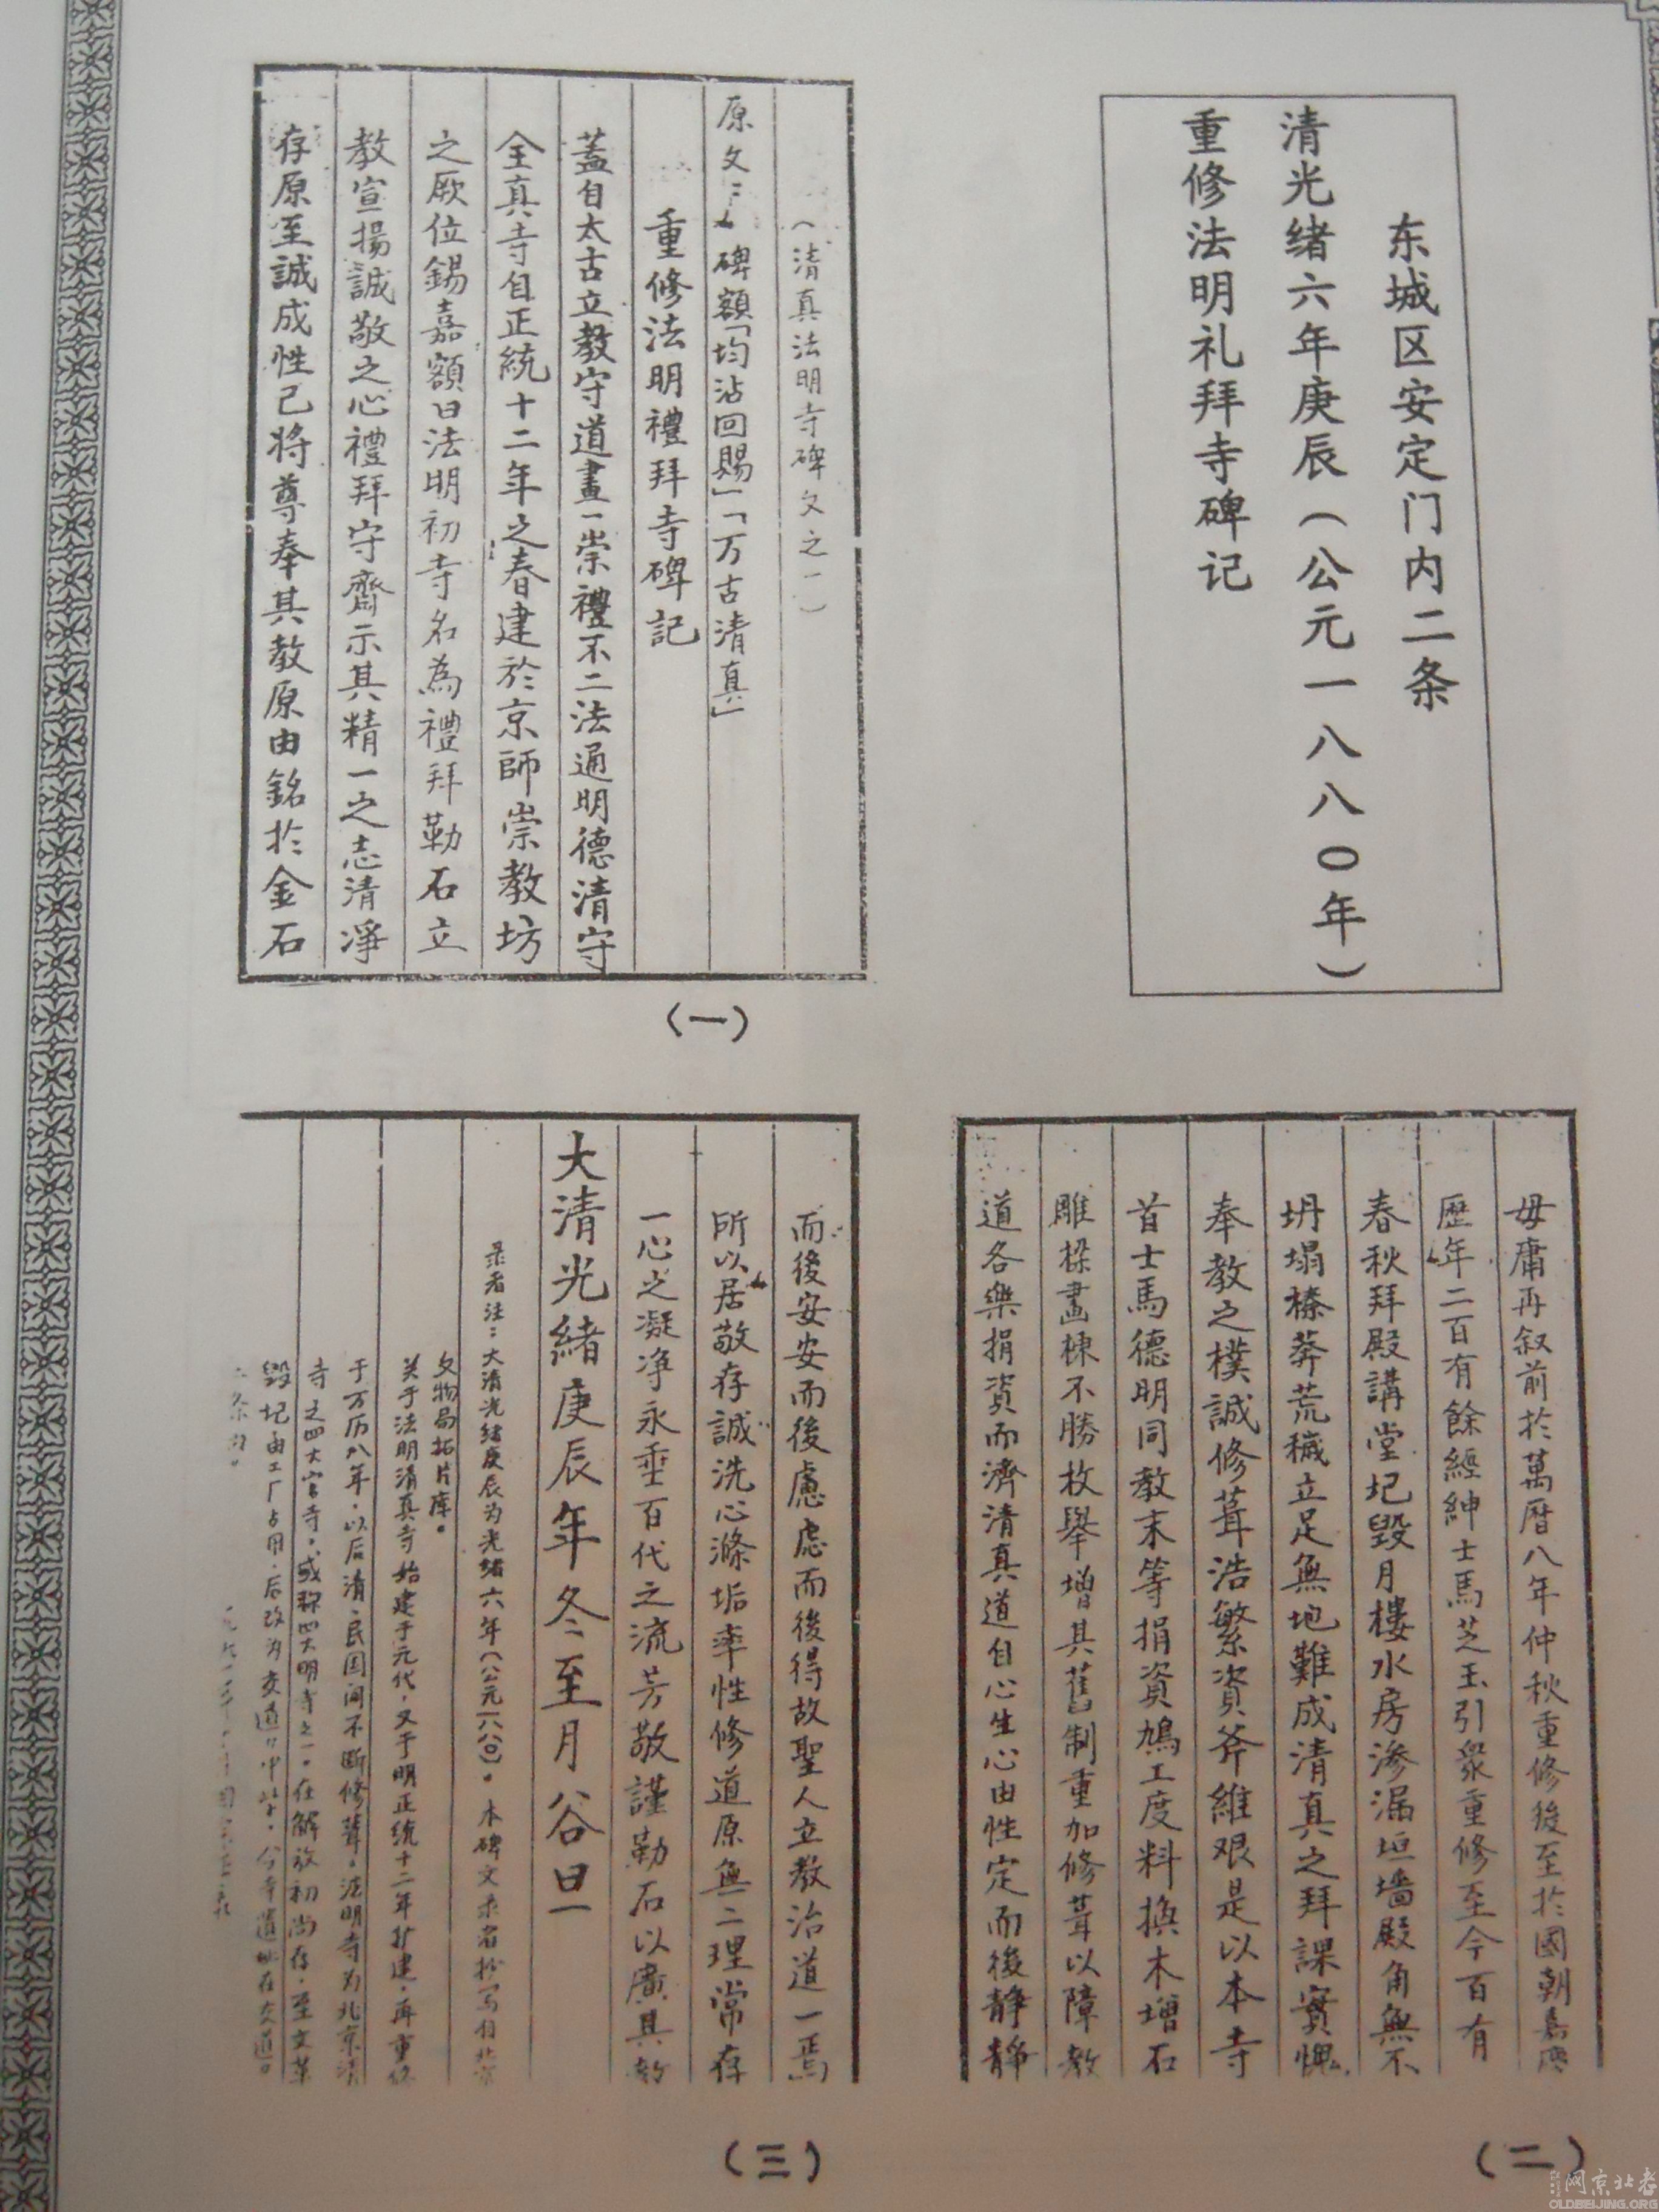 东城区安定门内二条
清光绪六年庚辰（公元一八八〇年）
重修法明礼拜寺碑记
（清真法明寺碑文之一）
原文：碑額「均沾回賜」「万古清真」
重修法明禮拜寺碑記
蓋自太古立教守道畫一崇禮不二法通明德清守
全真寺自正統十二年之春建於京師崇教坊
之厥位錫嘉額曰法明初寺名為禮拜勒石立
教宣揚誠敬之心禮拜守齋示其精一之志清淨
存原至誠成性己将尊奉其教原由銘於金石
（一）
毋庸再叙前於萬曆八年仲秋重修後至於國朝嘉慶
歷年二百有餘經紳士馬芝玉引衆重修至今百有
春秋拜殿講堂圮毀月樓水房滲漏垣墻殿角無不
坍塌榛莽荒穢立足無地難成清真之拜課實愧
奉教之樸誠修葺浩繁資斧維艰是以本寺
首士馬德明同教末等捐資鳩工度料換木增石
雕樑畫棟不勝枚舉增其舊制重加修葺以障教
道各樂捐資而濟清真道自心生心由性定而後靜靜
（二）
而後安安而後慮慮而後得故聖人立教治道一焉
所以居敬存誠洗心滌垢率性修道原無二理常存
一心之凝净永垂百代之流芳敬謹勒石以廣其教
大清光緒庚辰年冬至月谷旦
录者注：大清光绪庚辰为光绪六年（公元一八八〇）。本碑文录者抄写自北京
文物局拓片库。
关于法明清真寺始建于元代，又于明正统十二年扩建，再重修
于万历八年，以后清、民国间不断修葺。法明寺为北京清
寺之四大官寺，或称四大明寺之一。在解放初尚存，至文革
毁圮由工厂占用，后改为交通口中学。今寺遗址在交道口
二条内。
（三）
网京北老
OLDBEIJING.ORG